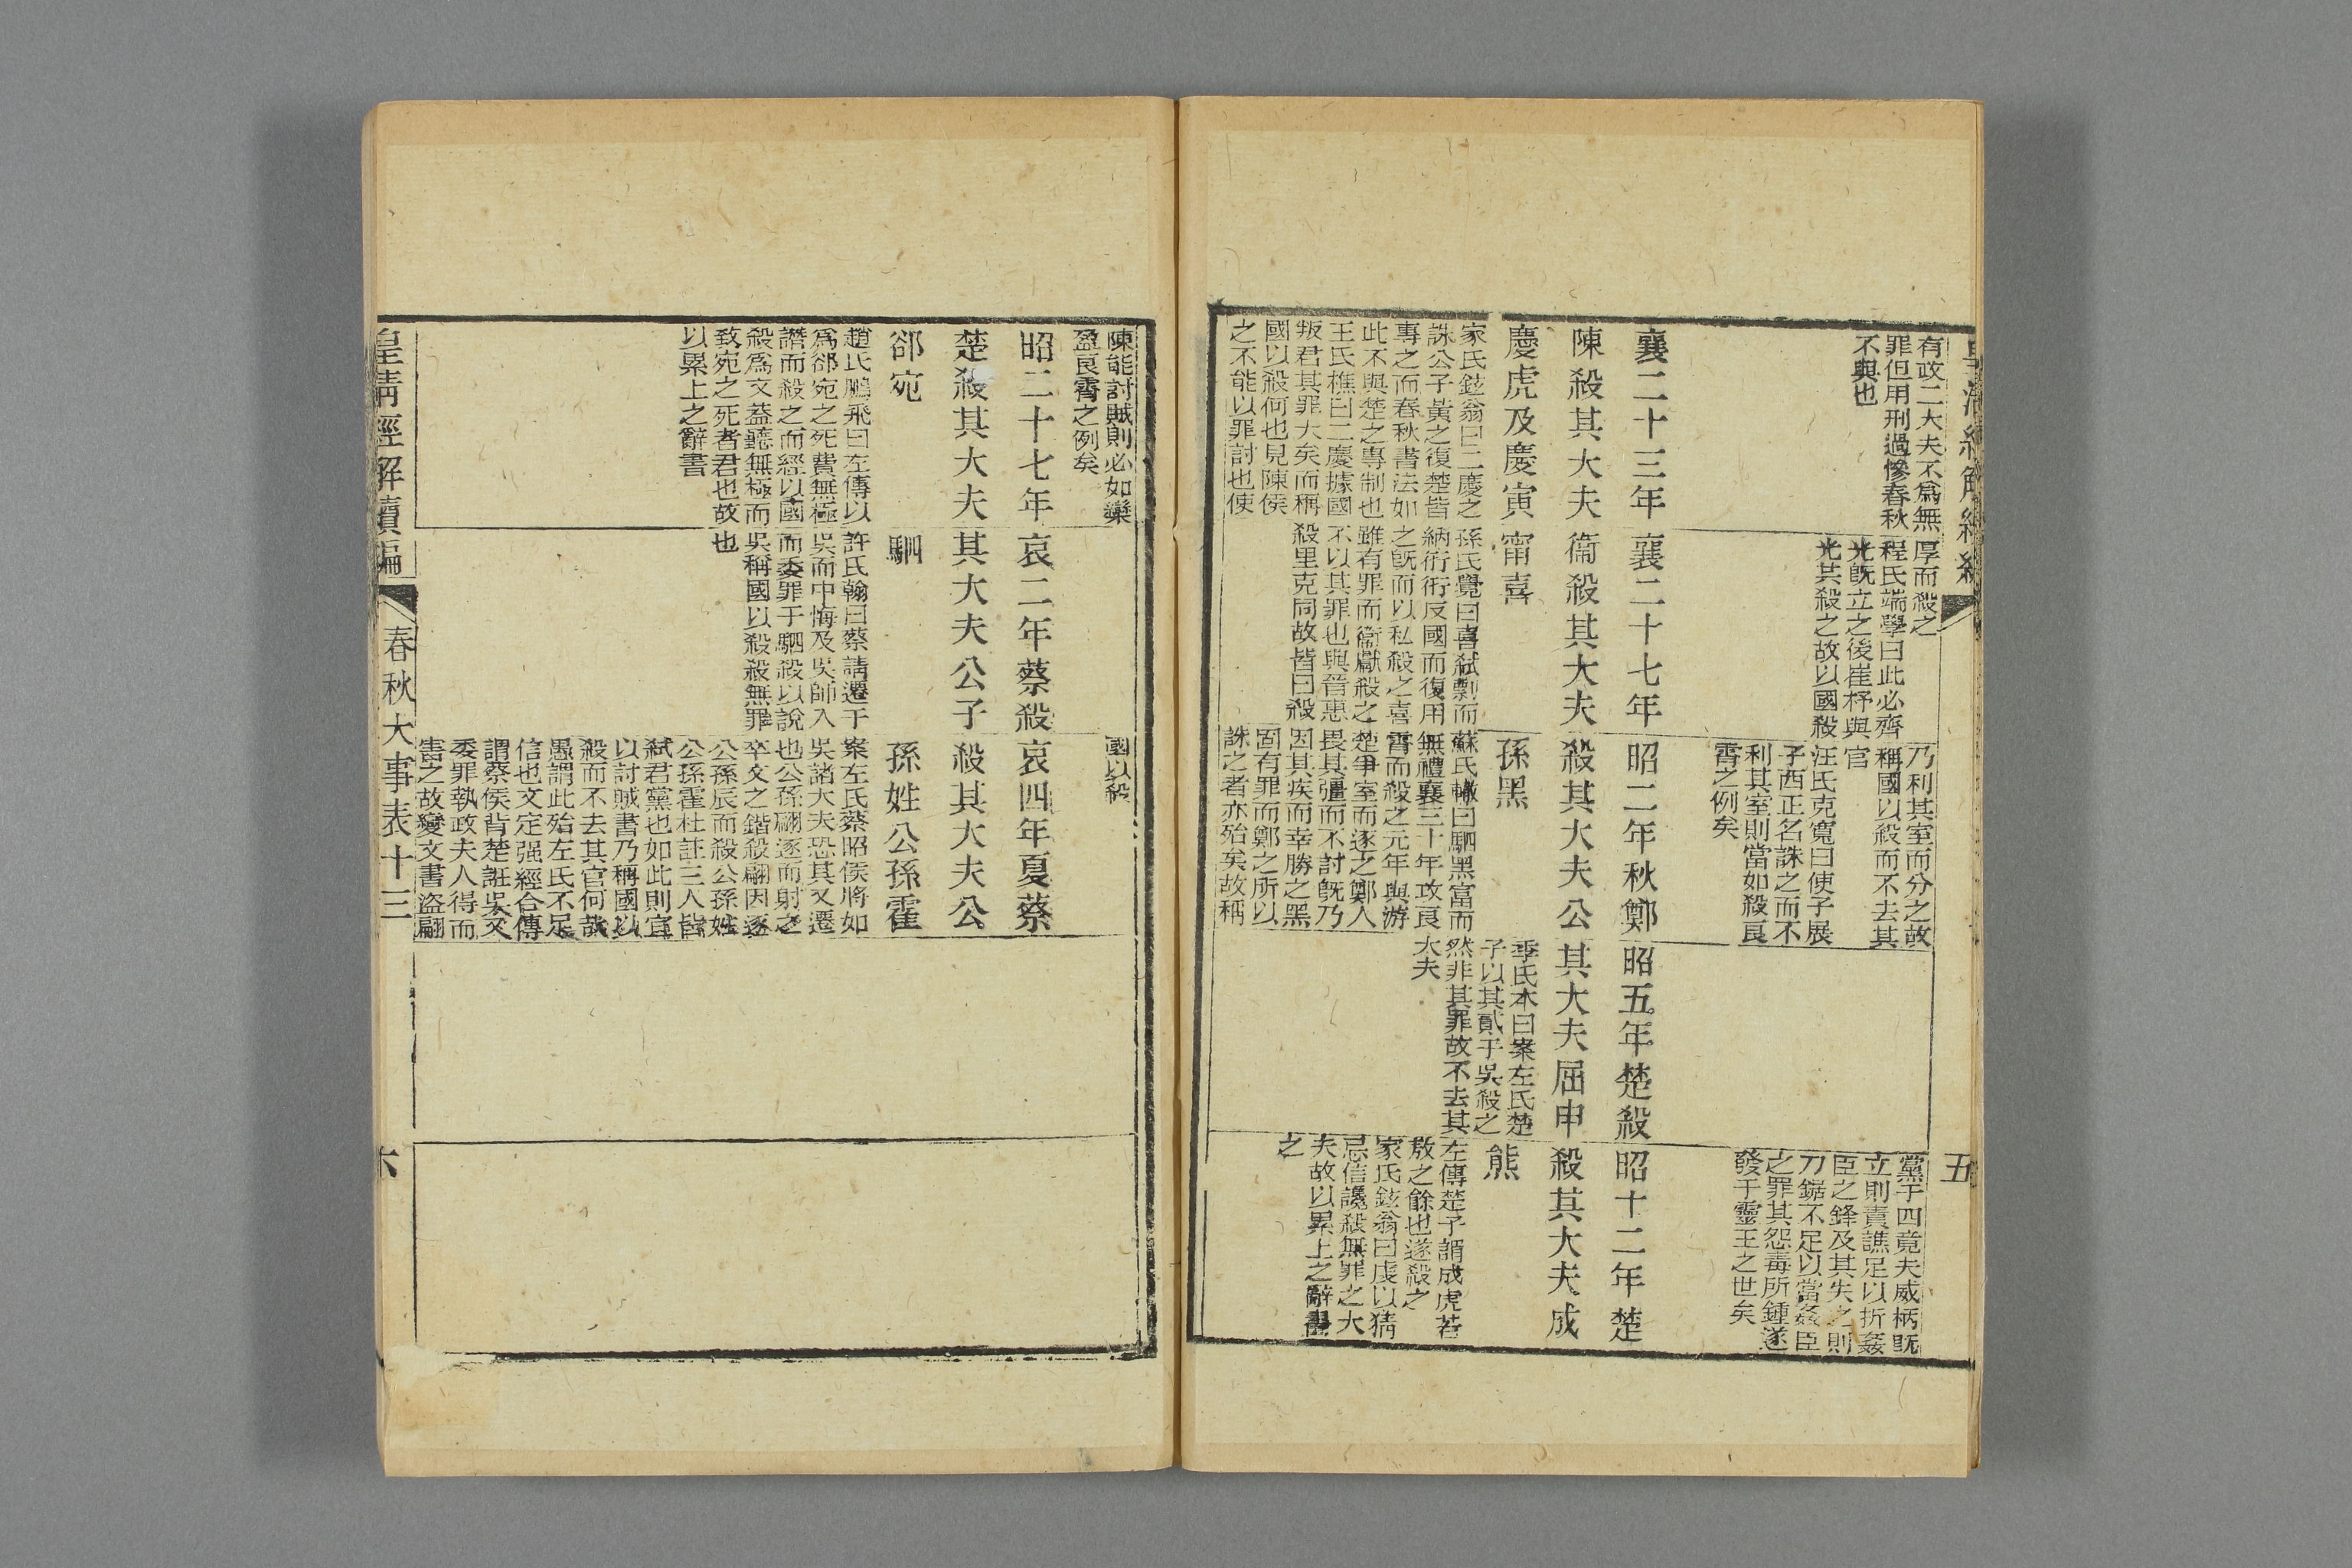 有政二大夫不爲無
罪但用刑過慘春秋
不與也
厚而殺之
程氏端學曰此必齊
光既立之後崔杼與
光其殺之故以國殺
乃利其室而分之故
稱國以殺而不去其
官
汪氏克寬曰使子展
子西正名誅之而不
利其室則當如殺良
霄之例矣
黨于四竟夫威柄既
立則責譙足以折姦
臣之鋒及其失之則
刀鋸不足以當姦臣
之罪其怨毒所鍾遂
發于靈王之世矣
五
襄二十三年
陳殺其大夫
慶虎及慶寅
家氏鉉翁曰二慶之
誅公子黃之復楚皆
專之而春秋書法如
此不與楚之專制也
王氏樵曰二慶據國
叛君其罪大矣而稱
國以殺何也見陳侯
之不能以罪討也使
襄二十七年
衞殺其大夫
甯喜
孫氏覺曰喜弑剽而
納衎衎反國而復用
之既而以私殺之喜
雖有罪而衞獻殺之
不以其罪也與晉惠
殺里克同故皆曰殺
昭二年秋鄭
殺其大夫公
孫黑
蘇氏轍曰駟黑富而
無禮襄三十年攻良
霄而殺之元年與游
楚爭室而逐之鄭人
畏其彊而不討既乃
因其疾而幸勝之黑
固有罪而鄭之所以
誅之者亦殆矣故稱
昭五年楚殺
其大夫屈申
季氏本曰案左氏楚
子以其貳于吳殺之
然非其罪故不去其
大夫
昭十二年楚
殺其大夫成
熊
左傳楚子謂成虎若
敖之餘也遂殺之
家氏鉉翁曰虔以猜
忌信讒殺無罪之大
夫故以累上之辭書
之
陳能討賊則必如欒
盈良霄之例矣
國以殺
昭二十七年
楚殺其大夫
郤宛
趙氏鵬飛曰左傳以
爲郤宛之死費無極
譖而殺之而經以國
殺爲文葢聽無極而
致宛之死者君也故
以累上之辭書
哀二年蔡殺
其大夫公子
駟
許氏翰曰蔡請遷于
吳而中悔及吳師入
而委罪于駟殺以說
吳稱國以殺殺無罪
也
哀四年夏蔡
殺其大夫公
孫姓公孫霍
案左氏蔡昭侯將如
吳諸大夫恐其又遷
也公孫翩逐而射之
卒文之鍇殺翩因逐
公孫辰而殺公孫姓
公孫霍杜註三人皆
弑君黨也如此則宜
以討賊書乃稱國以
殺而不去其官何哉
愚謂此殆左氏不足
信也文定强經合傳
謂蔡侯背楚誑吳又
委罪執政夫人得而
害之故變文書盜翩
皇清經解續編
春秋大事表十三
六